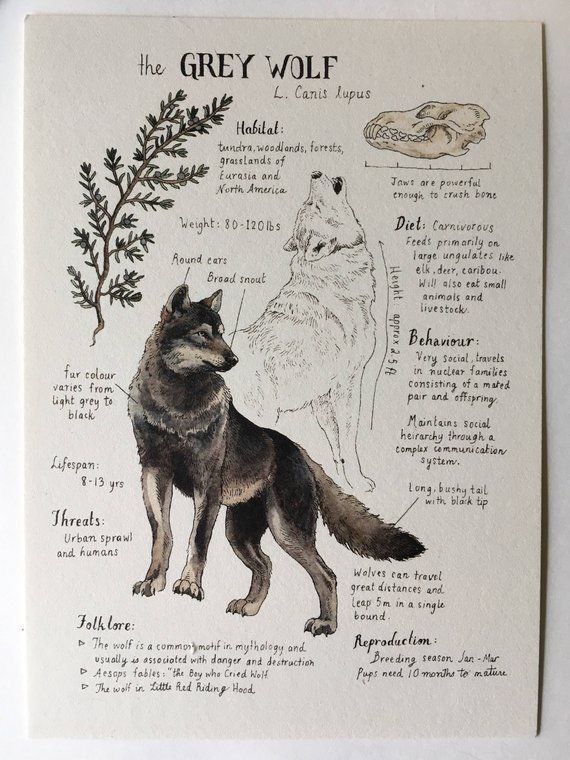 the GREY WOLF
L. Canis lupus
Habitat:
tundra, woodlands, forests,
grasslands of
Eurasia and
North America
Jaws are powerful
enough to crush bone
Weight: 80-120lbs
Round ears
Broad snout
Height approx 2.5 ft
Diet: Carnivorous
Feeds primarily on
large ungulates like
elk, deer, caribou.
Will also eat small
animals and
livestock.
Behaviour:
Very social, travels
in nuclear families
consisting of a mated
pair and offspring.
Maintains social
heirarchy through a
complex communication
system.
fur colour
varies from
light grey to
black
Lifespan:
8-13 yrs
Threats:
Urban sprawl
and humans
Long, bushy tail
with black tip
Wolves can travel
great distances and
leap 5m in a single
bound.
Folklore:
▷ The wolf is a common motif in mythology and
usually is associated with danger and destruction
▷ Aesops fables: "the Boy who Cried Wolf
▷ The wolf in Little Red Riding Hood
Reproduction:
Breeding season Jan - Mar
Pups need 10 months to mature